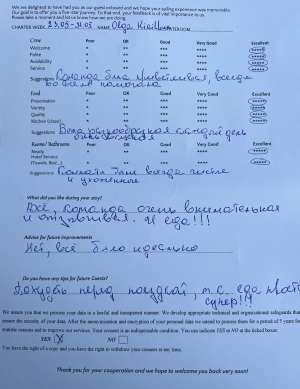 We are delighted to have had you as our guest onboard and we hope your sailing experience was memorable.
Our goal is to offer you a five-star journey. To that end, your feedback is of vital importance to us.
Please take a moment and let us know how we are doing.
CHARTER WEEK 23.05-30.05 NAME Olga
Crew Poor OK Good Very Good Excellent
Welcome * ** *** **** *****
Polite * ** *** **** *****
Availability * ** *** **** *****
Service * ** *** **** *****
Suggestions Команда была приветливая, всегда
во всём помогала
Food Poor OK Good Very Good Excellent
Presentation * ** *** **** *****
Variety * ** *** **** *****
Quality * ** *** **** *****
Kitchen * ** *** **** *****
Suggestions Еда разнообразная каждый день
Rooms/ Bathrooms Poor OK Good Very Good Excellent
Ready * ** *** **** *****
Hotel Service * ** *** **** *****
(Towels, Bed...) * ** *** **** *****
Suggestions Комнаты были всегда чистые
и ухоженные
What did you like during your stay?
Всё, команда очень внимательная
и отзывчивая. И еда!!!
Advice for future improvements
Нет, всё было идеально
Do you have any tips for future Guests?
Похудеть перед поездкой, т.с. еда просто
супер!!!
We assure you that we process your data in a lawful and transparent manner. We develop appropriate technical and organizational safeguards that
ensure the security of your data. After the anonymization and encryption of your personal data we intend to process them for a period of 5 years for
statistic reasons and to improve our services. Your consent is an indispensable condition. You can indicate YES or NO at the ticked boxes:
YES X NO
You have the right of a copy and you have the right to withdraw your consent at any time.
Thank you for your cooperation and we hope to welcome you back very soon!